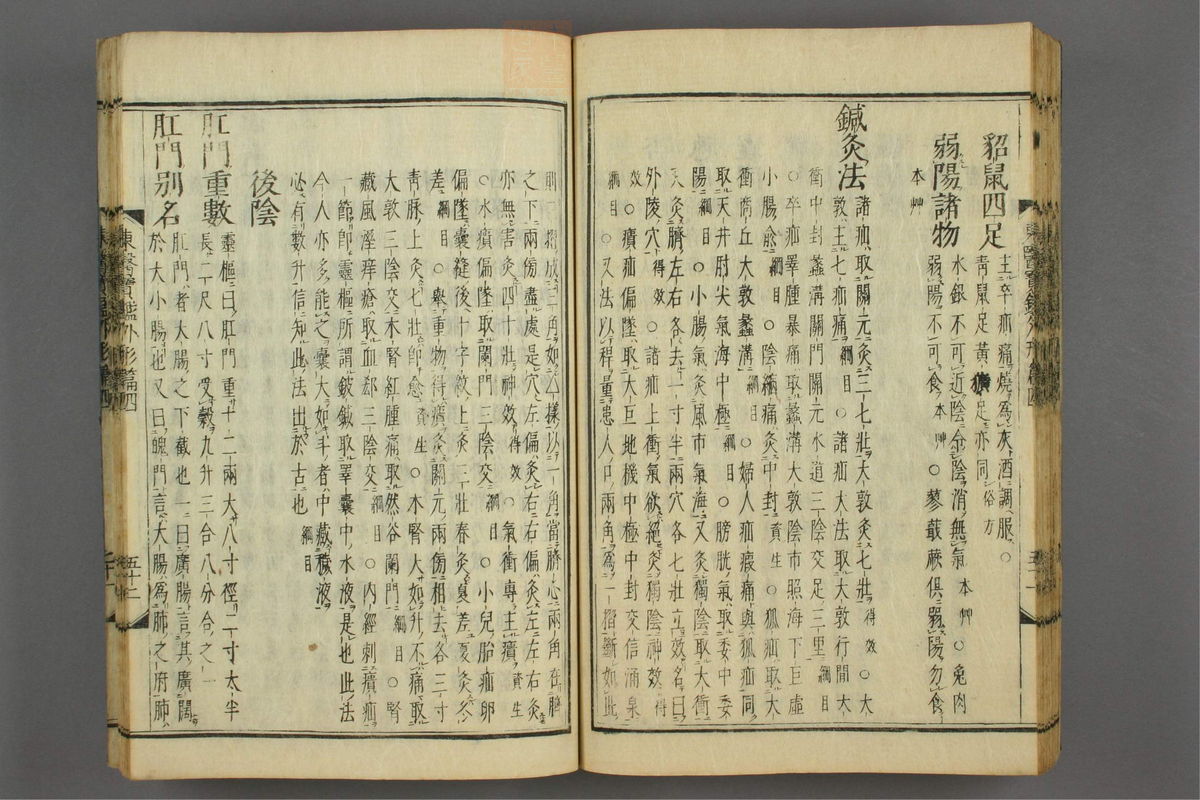 貂鼠四足 主卒疝痛燒爲灰酒調服○
青鼠足黃獷足亦同俗方
弱陽諸物 水銀不可近陰令陰消無氣本艸○兔肉
弱陽不可食本艸○蓼蕺蕨俱弱陽勿食
本艸
鍼灸法 諸疝取關元灸三七壯大敦灸七壯得效○大
敦主七疝痛綱目○諸疝大法取大敦行間大
衝中封蠡溝關門關元水道三陰交足三里綱目
○卒疝睪腫暴痛取蠡溝大敦陰市照海下巨虛
小腸兪綱目○陰縮痛灸中封資生○狐疝取大
衝商丘大敦蠡溝綱目○婦人疝瘕痛與狐疝同
取天井肘尖氣海中極綱目○膀胱氣取委中委
陽綱目○小腸氣灸風市氣海又灸獨陰取大衝
又灸臍左右各去一寸半兩穴各七壯立效名曰
外陵穴得效○諸疝上衝氣欲絕灸獨陰神效得
效○㿗疝偏墜取大巨地機中極中封交信涌泉
綱目○又法以稈量患人口兩角爲一摺斷如此
則三摺成三角如△樣以一角當臍心兩角在臍
之下兩傍盡處是穴左偏灸右右偏灸左左右灸
亦無害灸四十壯神效得效○氣衝專主㿗資生
○水㿗偏墜取闌門三陰交綱目○小兒胎疝卵
偏墜囊縫後十字紋上灸三壯春灸夏差夏灸冬
差綱目○擧重物得㿗灸關元兩傍相去各三寸
靑脉上灸七壯卽愈資生○木腎大如升不痛取
大敦三陰交木腎紅腫痛取然谷闌門綱目○腎
藏風濕痒瘡取血郄三陰交綱目○內經刺㿗疝
一節卽靈樞所謂鈹鍼取睪囊中水液是也此法
今人亦多能之囊大如斗者中藏穢液
必有數升信知此法出於古也綱目
後陰
肛門重數 靈樞曰肛門重十二兩大八寸徑二寸太半
長二尺八寸受穀九升三合八分合之一
肛門別名 肛門者大腸之下截也一曰廣腸言其廣闊
於大小腸也又曰魄門言大腸爲肺之府肺
東醫寶鑑外形篇四
五十二